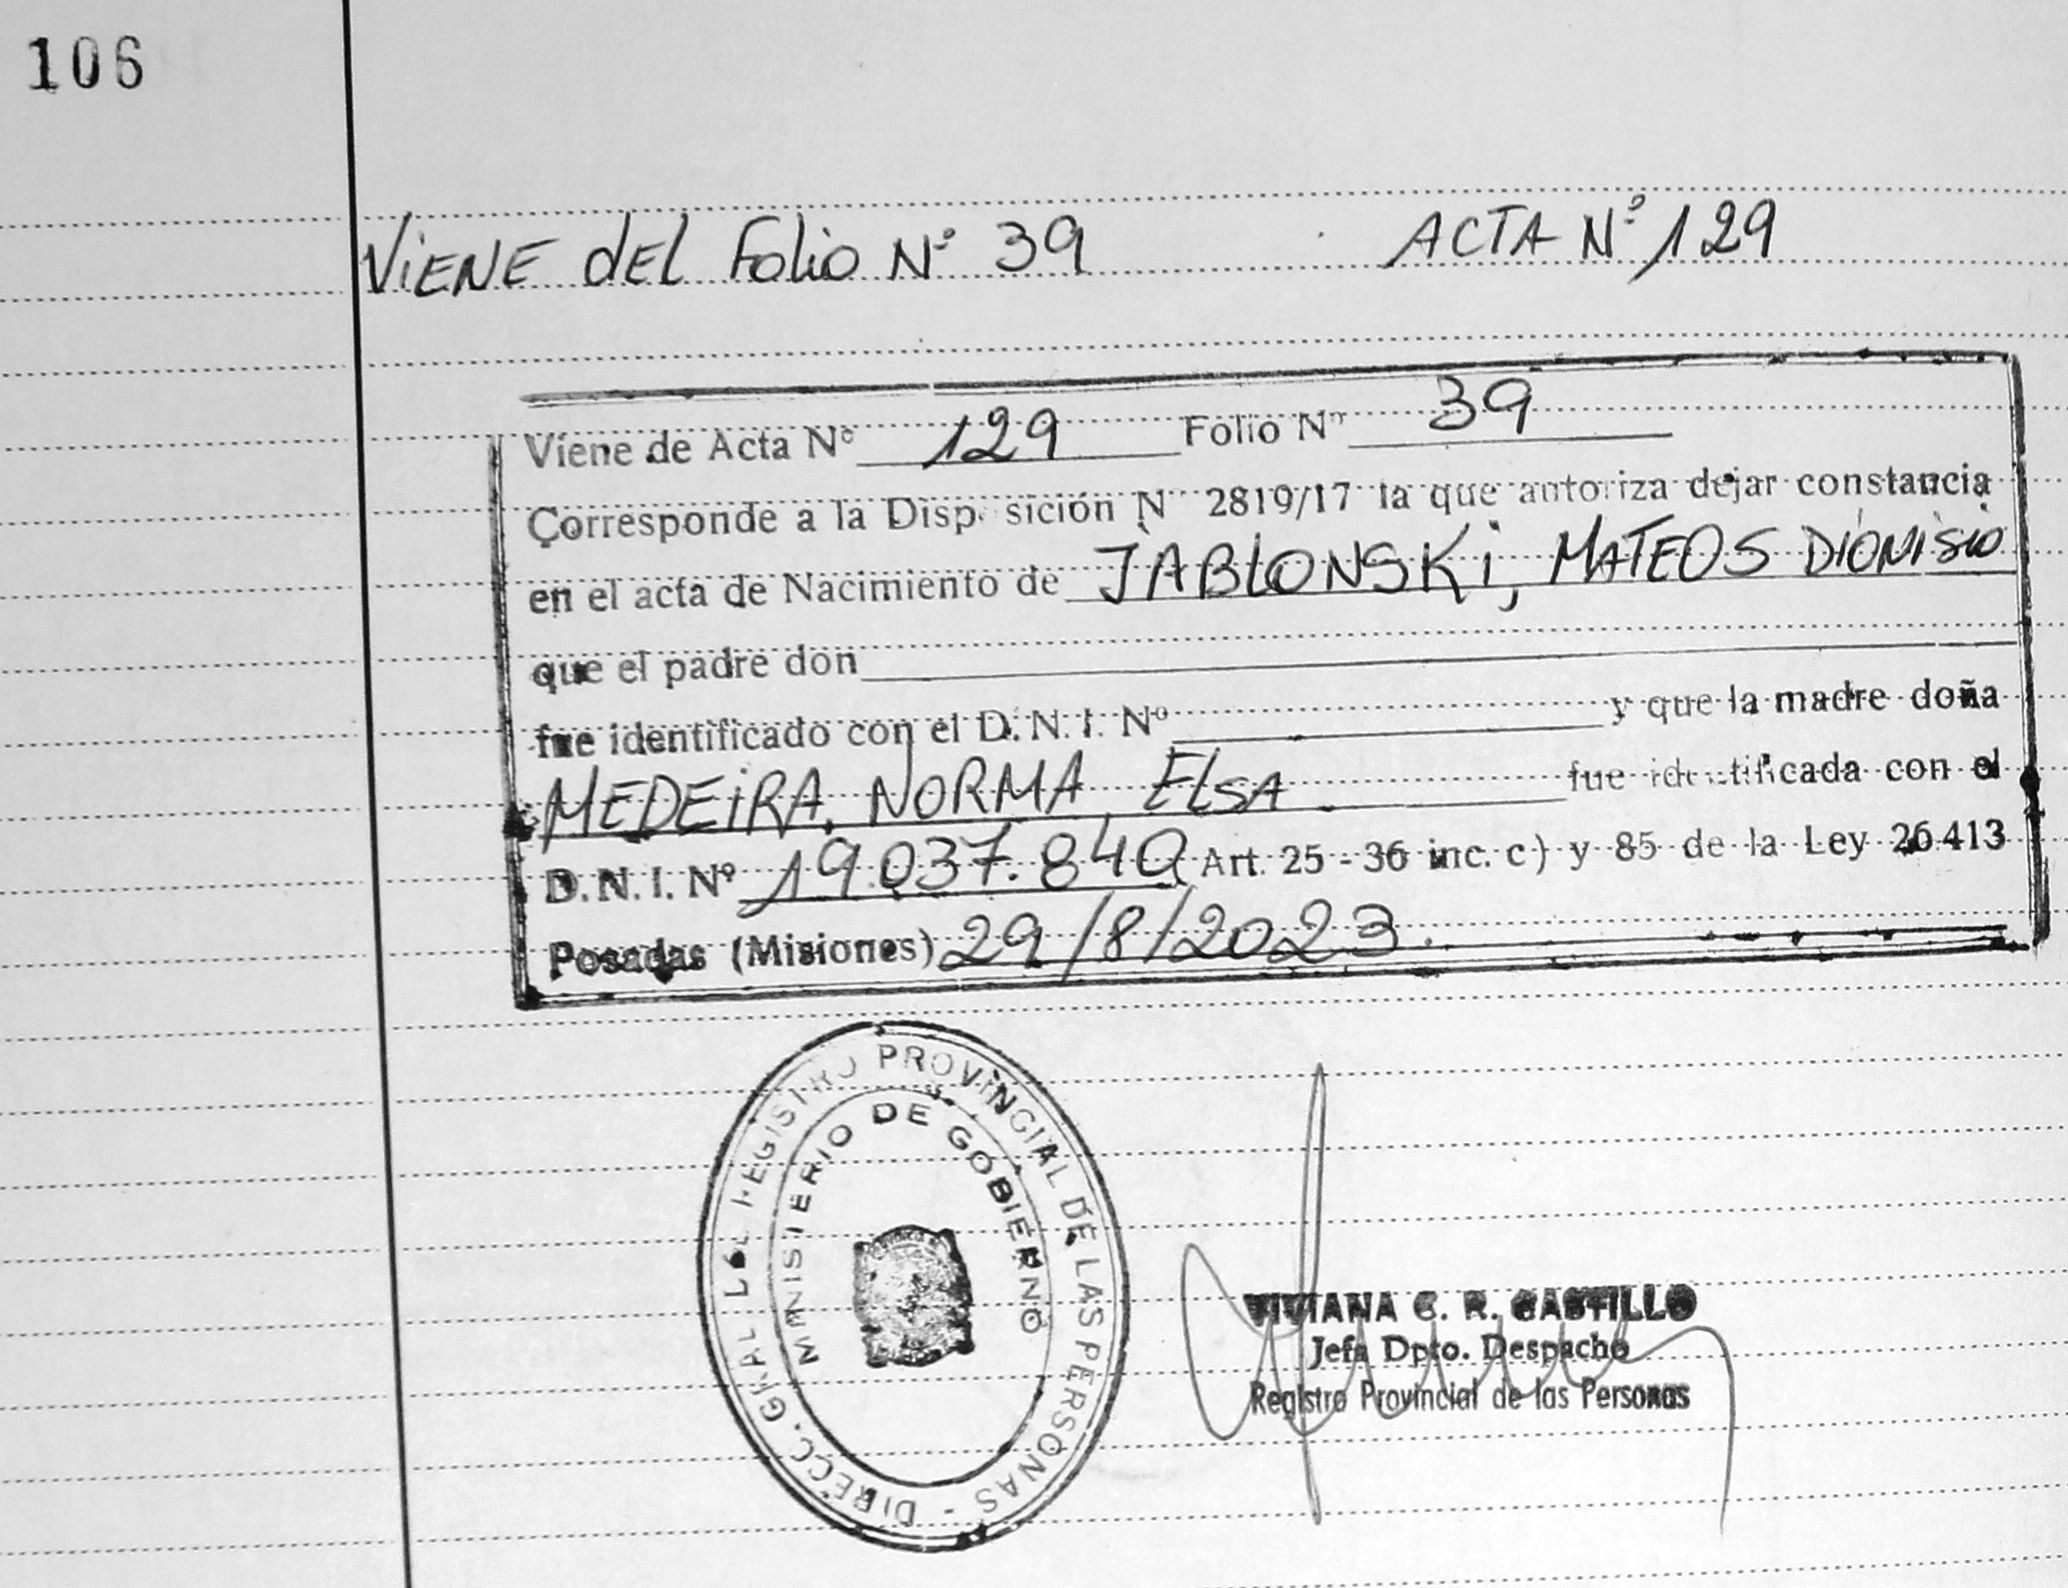 106
ViENE dEL Folio Nº 39 ACTA Nº 129
Viene de Acta Nº 129 Folio Nº 39
Corresponde a la Disposición Nº 2819/17 la que autoriza dejar constancia
en el acta de Nacimiento de JABLONSKi, MATEOS DIONISIO
que el padre don
fue identificado con el D.N.I. Nº y que la madre doña
MEDEiRA, NORMA ELSA. fue identificada con el
D.N.I. Nº 19.037.849 Art. 25 - 36 inc. c) y 85 de la Ley 26413
Posadas (Misiones) 29/8/2023.
DIRECC. GRAL DEL REGISTRO PROVINCIAL DE LAS PERSONAS -
MINISTERIO DE GOBIERNO
VIVIANA C. R. CASTILLO
Jefa Dpto. Despacho
Registro Provincial de las Personas